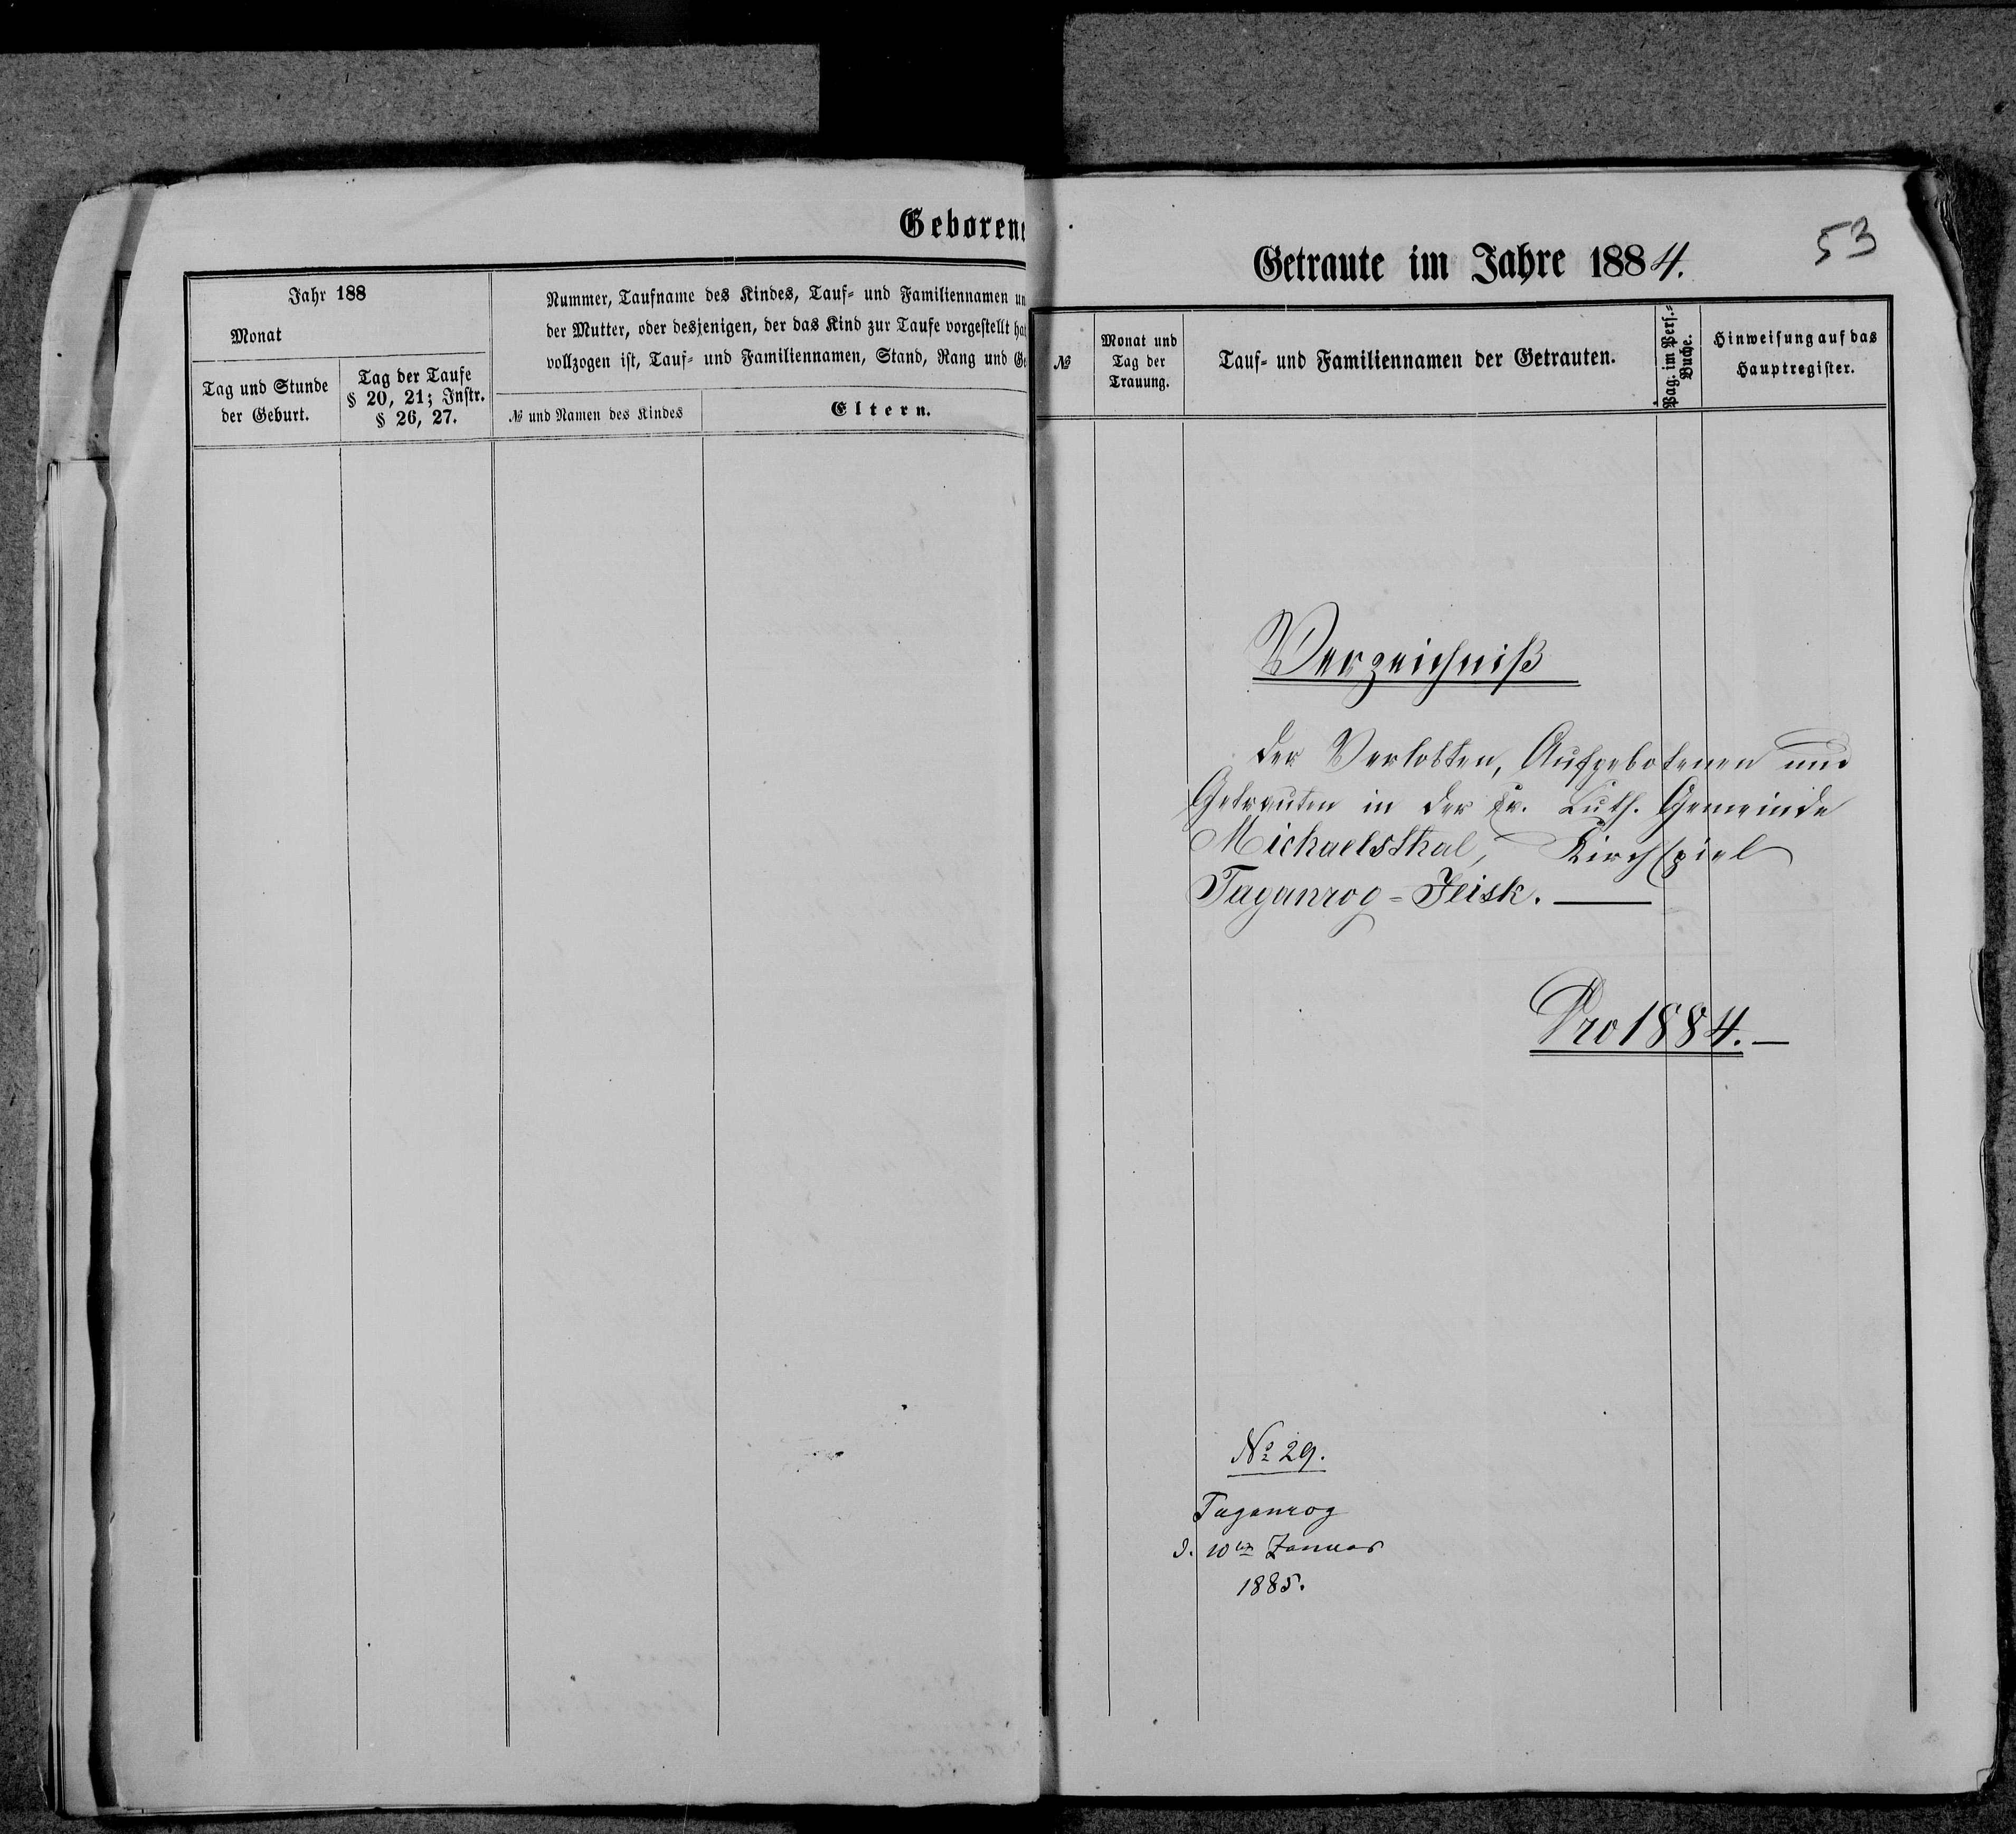 Geborene
Jahr 188
Monat
Tag und Stunde
der Geburt.
Tag der Taufe
§ 20, 21; Instr.
§ 26, 27.
Nummer, Taufname des Kindes, Tauf- und Familiennamen un
der Mutter, oder desjenigen, der das Kind zur Taufe vorgestellt hat
vollzogen ist, Tauf- und Familiennamen, Stand, Rang und Ge
№ und Namen des Kindes
Eltern.
53
Getraute im Jahre 1884.
№
Monat und
Tag der
Trauung.
Tauf- und Familiennamen der Getrauten.
Pag. im Pers.-
Buche.
Hinweisung auf das
Hauptregister.
Verzeichniß
der Verlobten, Aufgebotenen und
Getrauten in der Ev. Luth. Gemeinde
Michaelsthal, Kirchspiel
Taganrog-Jeisk.
Pro 1884.
№ 29.
Taganrog
d. 10ten Januar
1885.